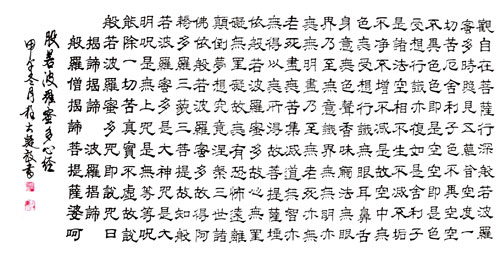 觀自在菩薩行深般若波羅
蜜多時照見五蘊皆空度一
切苦厄舍利子色不異空空
不異色色即是空空即是色
受想行識亦復如是舍利子
是諸法空相不生不滅不垢
不淨不增不減是故空中無
色無受想行識無眼耳鼻舌
身意無色聲香味觸法無眼
界乃至無意識界無無明亦
無無明盡乃至無老死亦無
老死盡無苦集滅道無智亦
無得以無所得故菩提薩埵
依般若波羅蜜多故心無罣
礙無罣礙故無有恐怖遠離
顛倒夢想究竟涅槃三世諸
佛依般若波羅蜜多故得阿
耨多羅三藐三菩提故知般
若波羅蜜多是大神咒是大
明咒是無上咒是無等等咒
能除一切苦真實不虛故說
般若波羅蜜多咒即說咒曰
揭諦揭諦 波羅揭諦
般羅僧揭諦菩提薩婆呵
般若波羅蜜多心經
甲午冬月 敬書